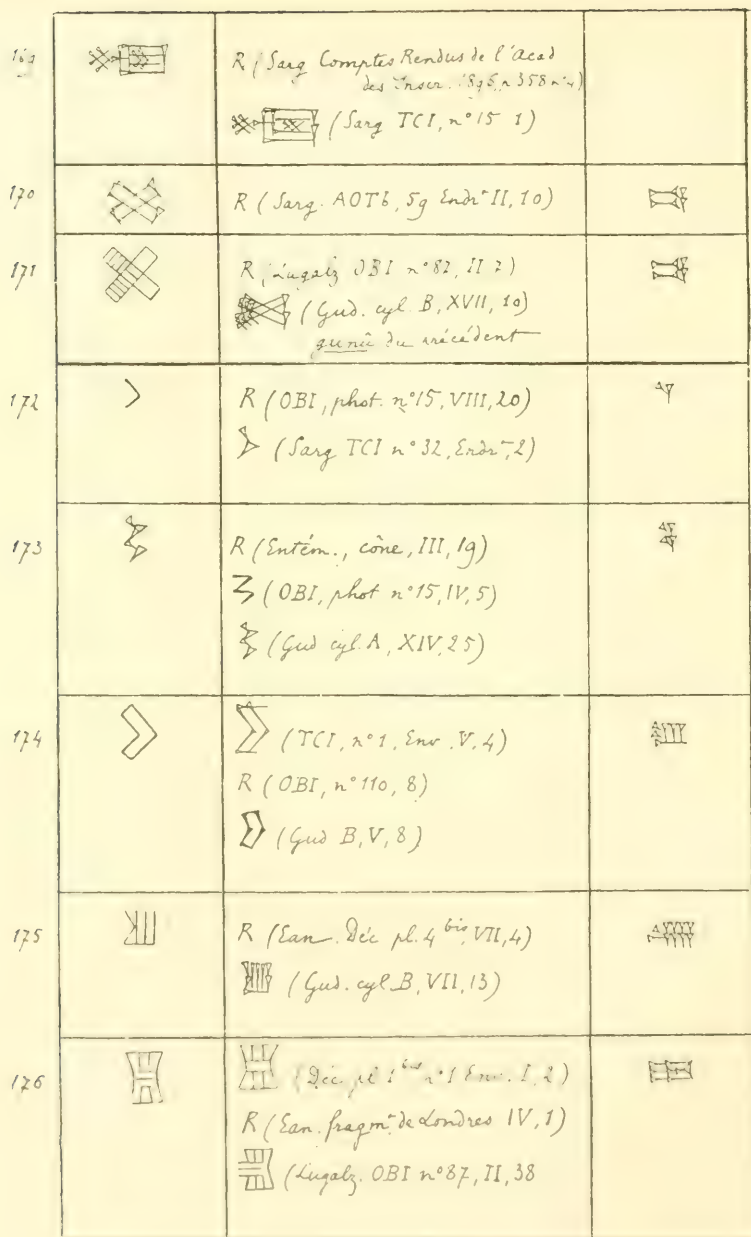 169
R (Sarg Comptes Rendus de l'Acad
des Inscr. 1896, p. 358 n° 4)
(Sarg TCI, n° 15 1)
170
R (Sarg. AOTb, 59 Endr^t II, 10)
171
R, Lugalz OBI n° 87, II 7)
(Gud. cyl. B, XVII, 10)
gunû du précédent
172
R (OBI, phot. n° 15, VIII, 20)
(Sarg TCI n° 32, Endr^t, 2)
173
R (Entém., cône, III, 19)
(OBI, phot n° 15, IV, 5)
(Gud cyl. A, XIV, 25)
174
(TCI, n° 1, Env. V, 4)
R (OBI, n° 110, 8)
(Gud B, V, 8)
175
R (Ean. Déc pl. 4^bis, VII, 4)
(Gud. cyl B, VII, 13)
176
(Déc pl 1 n° 1 Env. I, 2)
R (Ean. fragm^t de Londres IV, 1)
(Lugalz. OBI n° 87, II, 38